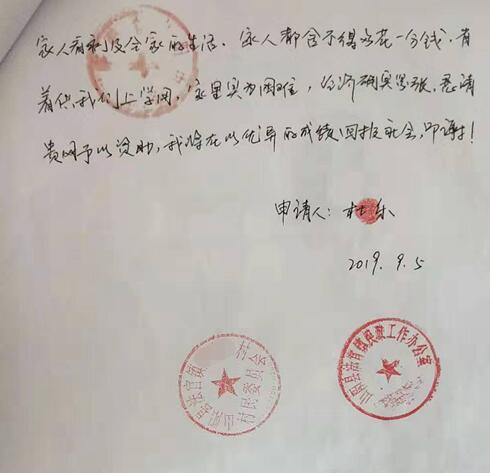 家人看病及全家的生活。家人都舍不得多花一分钱,省
着供我们上学用,家里实为困难,经济确实紧张,恳请
贵网予以资助,我将在以优异的成绩回报社会,叩谢!
申请人:杜乐
2019.9.5
法官镇
村民委员会
山阳县法官镇民政工作办公室